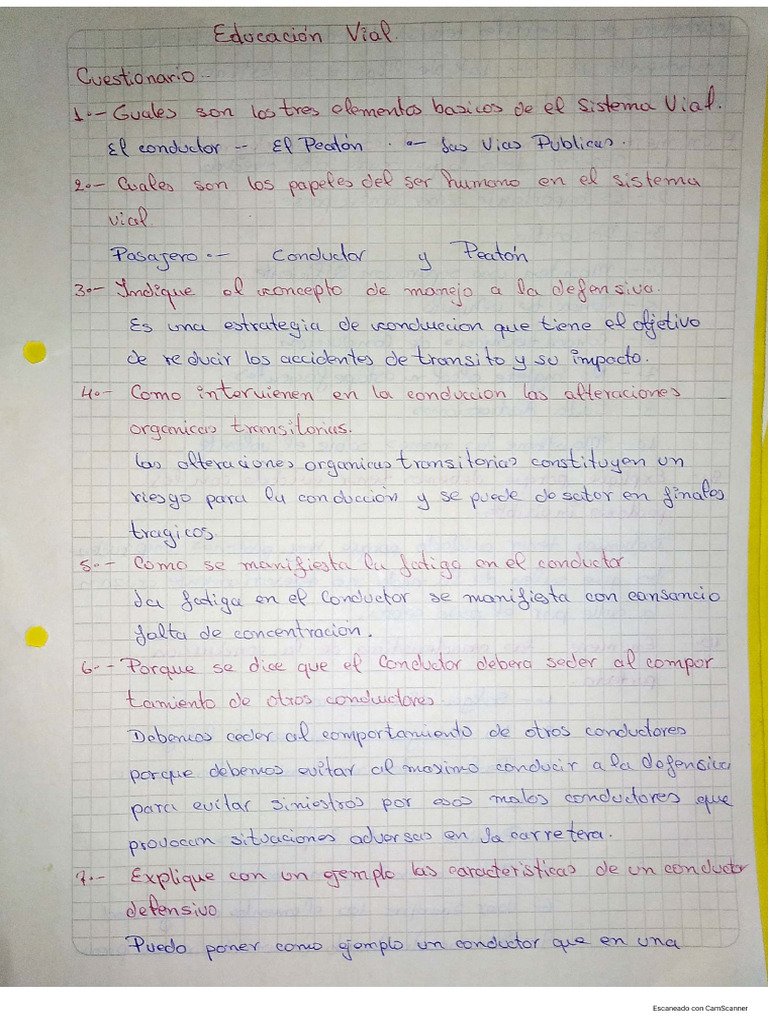 Educación Vial.
Cuestionario..
1.- Cuales son los tres elementos basicos de el Sistema Vial.
El conductor -- El Peatón. .- Las Vias Publicas.
2.- Cuales son los papeles del ser humano en el sistema
vial.
Pasajero.- Conductor y Peatón
3.- Indique el concepto de manejo a la defensiva.
Es una estrategia de conduccion que tiene el objetivo
de reducir los accidentes de transito y su impacto.
4.- Como intervienen en la conduccion las alteraciones
organicas transitorias.
Las alteraciones organicas transitorias constituyen un
riesgo para la conducción y se puede desatar en finales
tragicos.
5.- Como se manifiesta la fatiga en el conductor
La fatiga en el conductor se manifiesta con cansancio
falta de concentración.
6.- Porque se dice que el conductor debera seder al compor
tamiento de otros conductores.
Debemos ceder al comportamiento de otros conductores
porque debemos evitar al maximo conducir a la defensiva
para evitar siniestros por esos malos conductores que
provocan situaciones adversas en la carretera.
7.- Explique con un ejemplo las caracteristicas de un conductor
defensivo
Puedo poner como ejemplo un conductor que en una
Escaneado con CamScanner